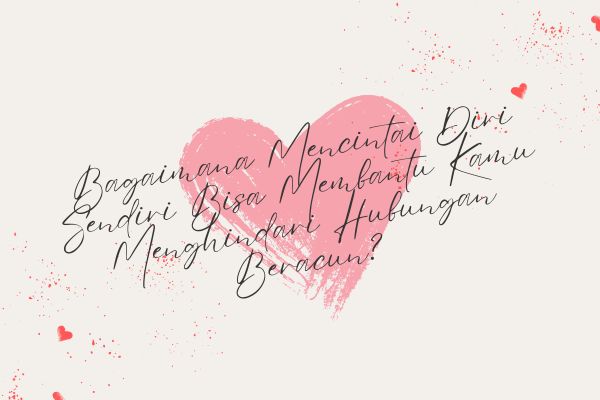 Bagaimana Mencintai Diri
Sendiri Bisa Membantu Kamu
Menghindari Hubungan
Beracun?